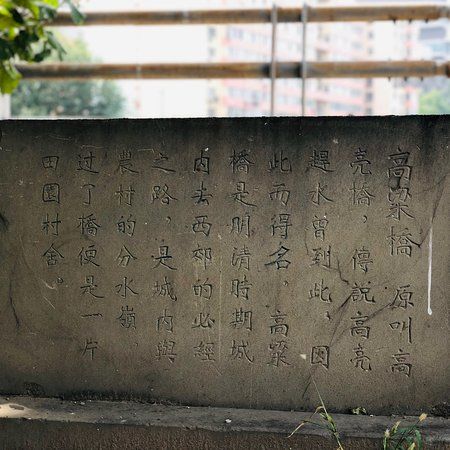 高梁橋 原叫高
亮橋，傳説高亮
趕水曾到此，因
此而得名。高梁
橋是明清時期城
内去西郊的必經
之路，是城内與
農村的分水嶺，
过了橋便是一片
田園村舍。